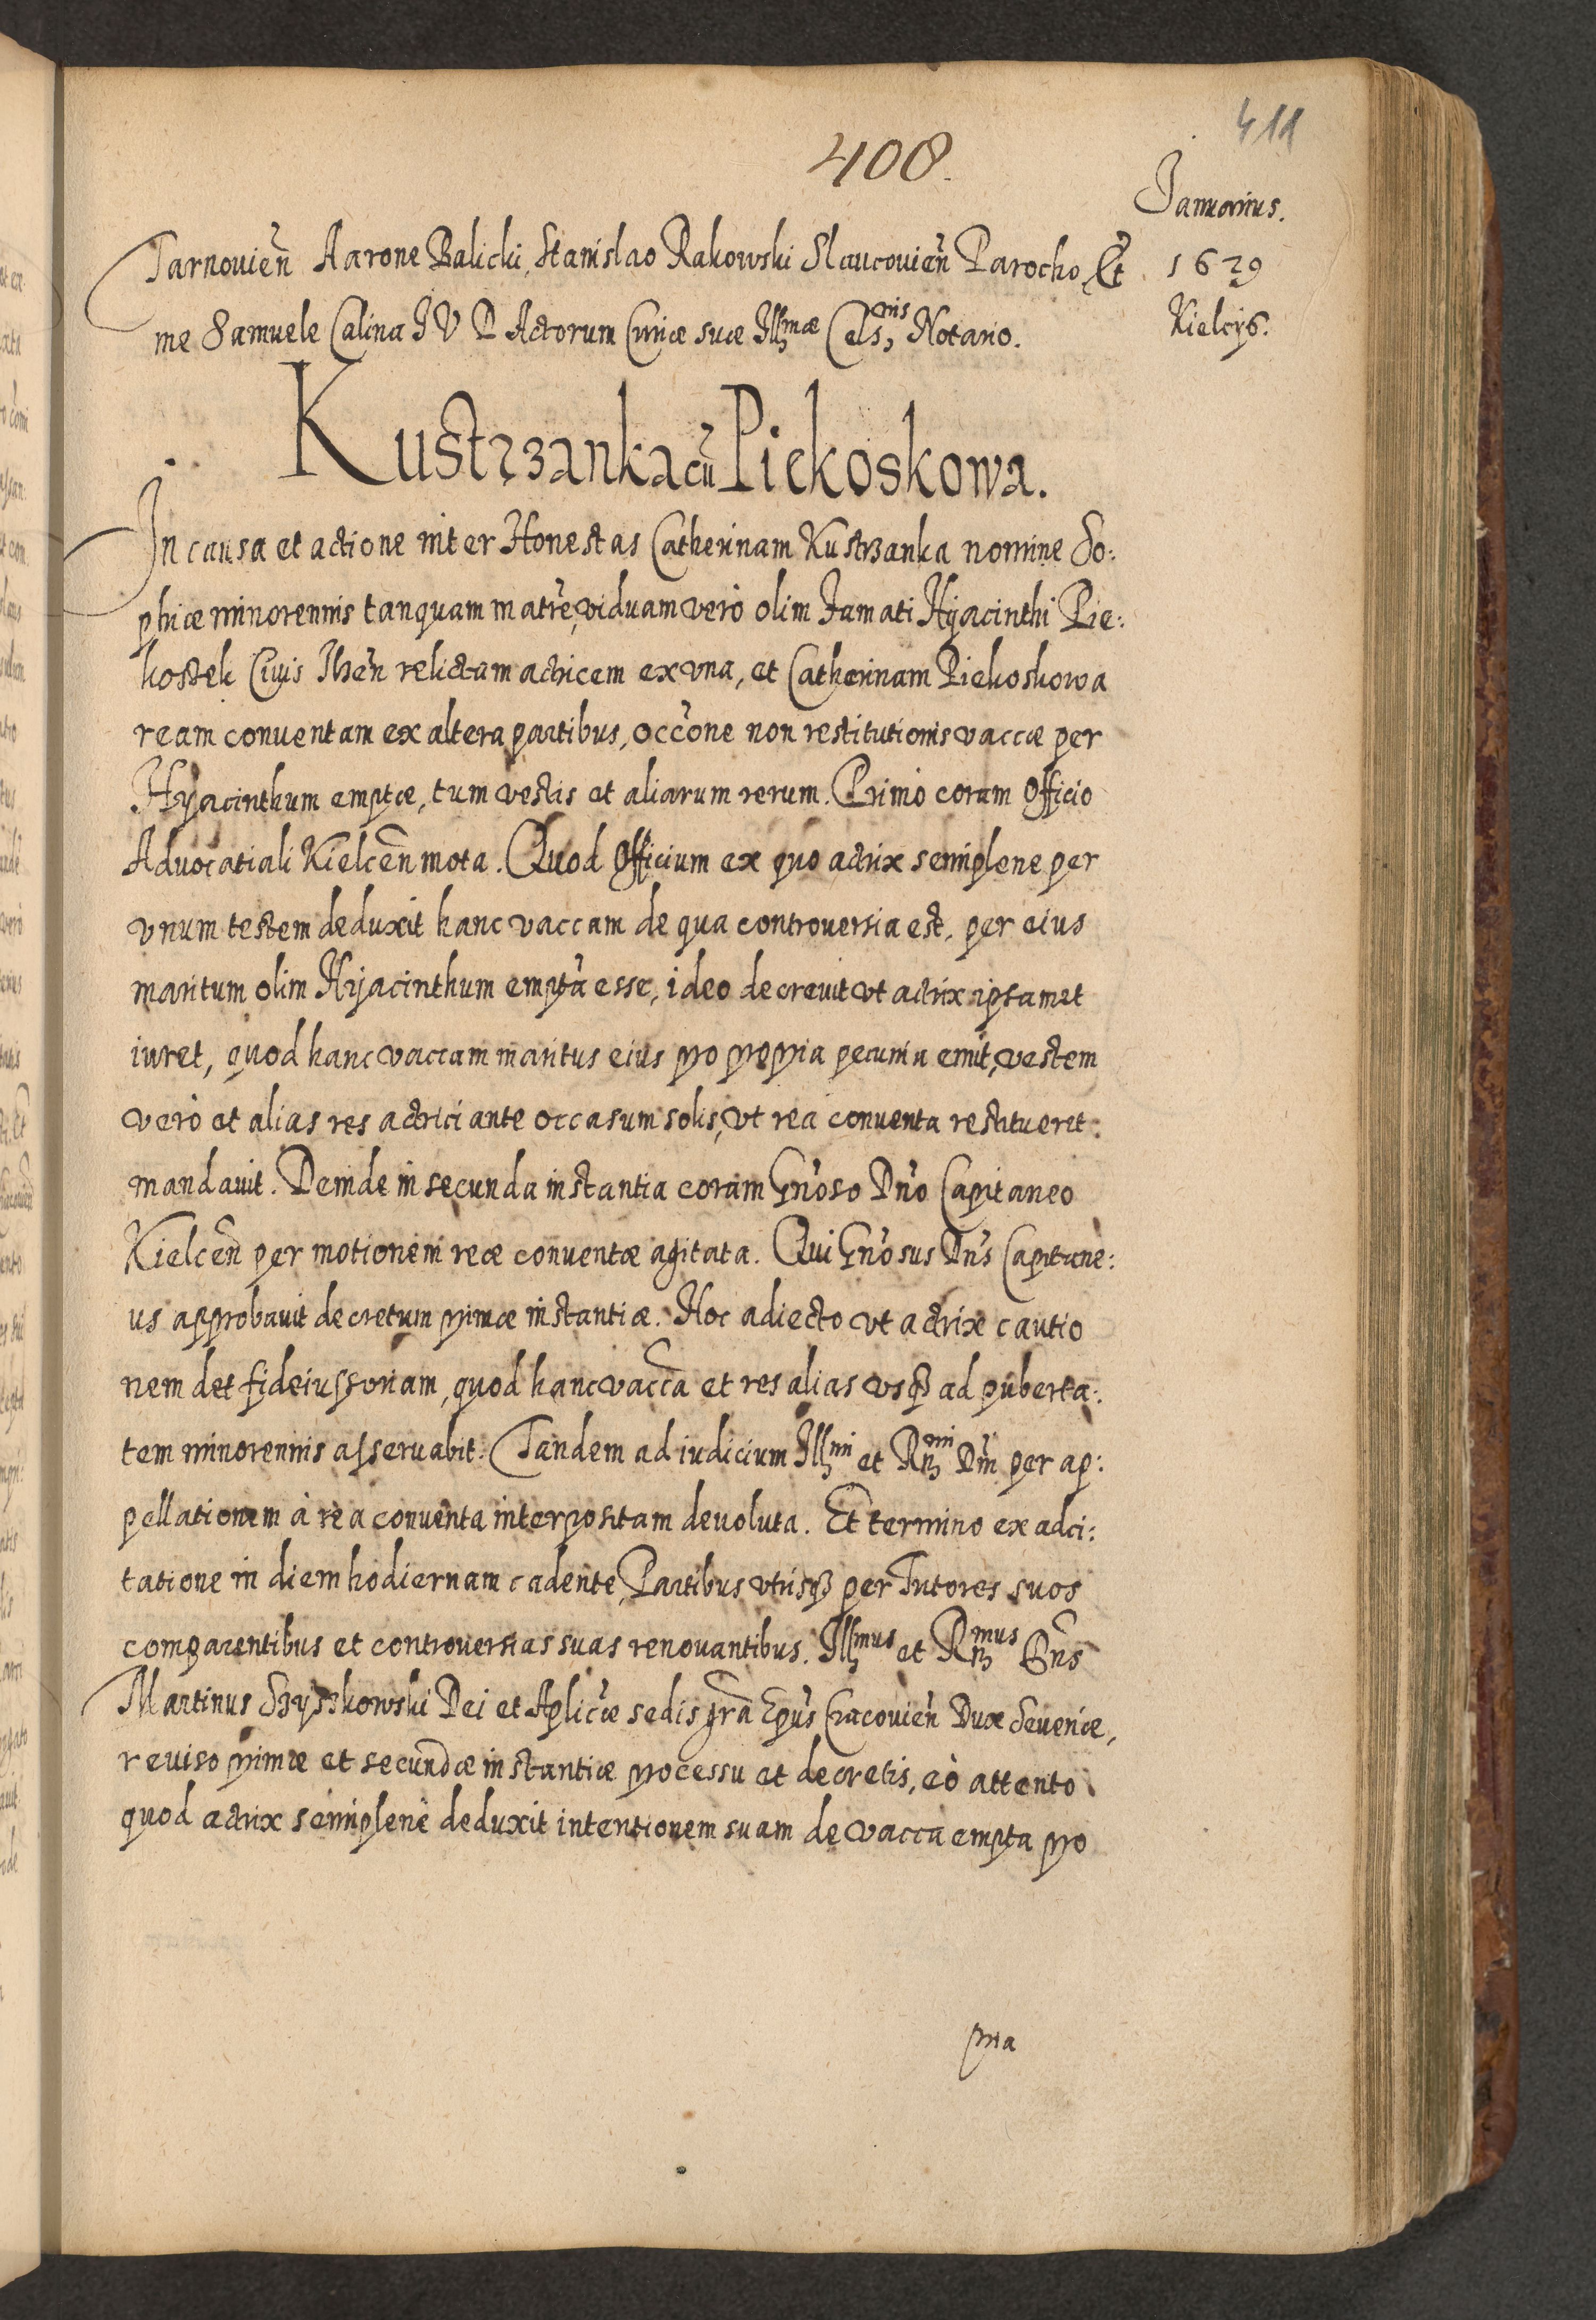 411
408.
Januarius.
1629
Kielcijs.
Tarnovieñ Aarone Balicki, Stanislao Rakowski Slaucovieñ Parocho, Et
me Samuele Calina I V D Actorum Curiæ suæ Illmæ Celsnis Notario.
Kustrzanka cũ Piekoskowa.
In causa et actione inter Honestas Catherinam Kustrzanka nomine So:
phiæ minorennis tanquam matrẽ, viduam verò olim Famati Hyacinthi Pie:
kostek Civis Ibeñ relictam actricem ex vna, et Catherinam Piekoskowa
ream conventam ex altera partibus, occõne non restitutionis vaccæ per
Hyacinthum emptæ, tum vestis et aliarum rerum. Primò coram Officio
Advocatiali Kielceñ mota. Quod Officium ex quo actrix semiplene per
vnum testem deduxit hanc vaccam de qua controversia est, per eius
maritum olim Hyacinthum emptã esse, ideo decrevit vt actrix ipsamet
iuret, quod hanc vaccam maritus eius pro propria pecunia emit, vestem
verò et alias res actrici ante occasum solis, vt rea conventa restitueret
mandavit. Deinde in secunda instantia coram Gñoso Dño Capitaneo
Kielceñ per motionem reæ conventæ agitata. Qui Gñosus Dñs Capitane:
us approbavit decretum primæ instantiæ. Hoc adiecto vt actrix cautio
nem det fideiussoriam, quod hanc vaccã et res alias vsq3 ad puberta:
tem minorennis asservabit. Tandem ad iudicium Illmi et Rmi Dni per ap:
pellationem à rea conventa interpositam devoluta. Et termino ex adci:
tatione in diem hodiernam cadente, Partibus vtrisq3 per Tutores suos
comparentibus et controversias suas renovantibus. Illmus et Rmus Dñs
Martinus Szyszkowski Dei et Aplicæ sedis grã Epũs Cracovieñ Dux Severiæ,
reviso primæ et secundæ instantiæ processu et decretis, eò attento
quod actrix semiplenè deduxit intentionem suam de vacca empta pro
pria